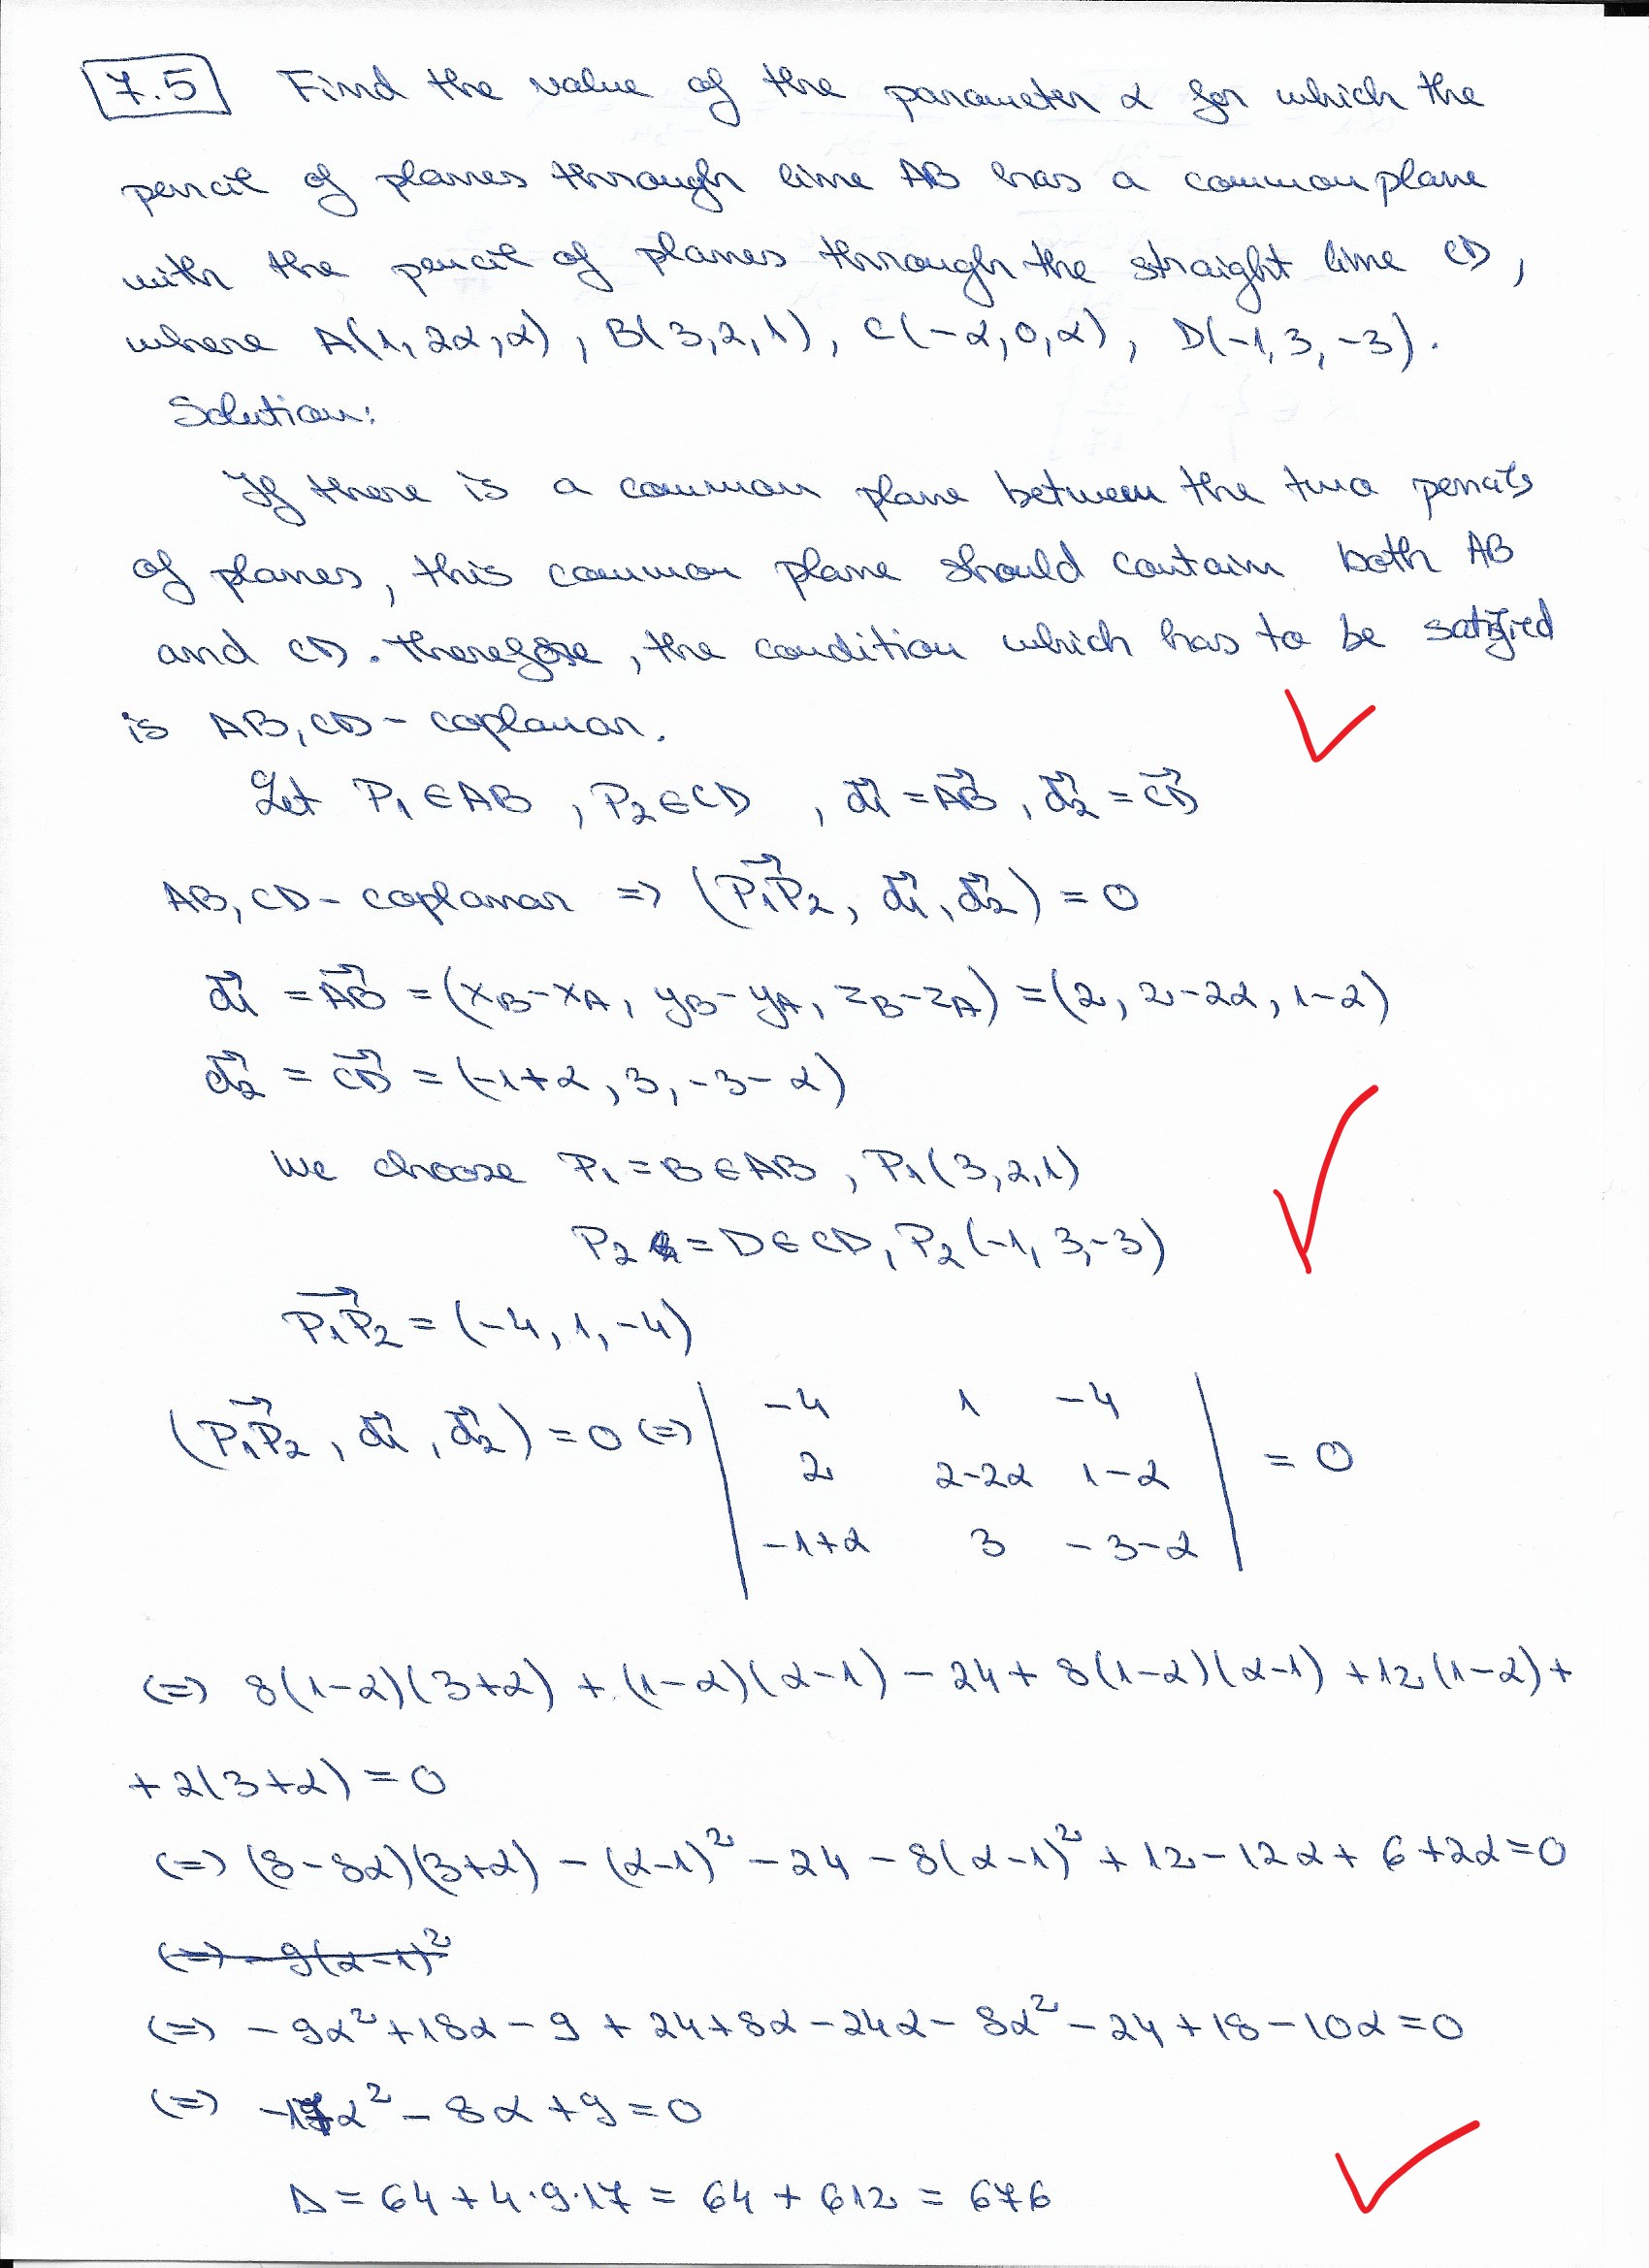 7.5 Find the value of the parameter α for which the
pencil of planes through line AB has a common plane
with the pencil of planes through the straight line CD,
where A(1, 2α, α), B(3, 2, 1), C(-α, 0, α), D(-1, 3, -3).
Solution:
If there is a common plane between the two pencils
of planes, this common plane should contain both AB
and CD. Therefore, the condition which has to be satisfied
is AB, CD - coplanar.
Let P₁ ∈ AB, P₂ ∈ CD, d₁⃗ = AB⃗, d₂⃗ = CD⃗
AB, CD - coplanar => (P₁P₂⃗, d₁⃗, d₂⃗) = 0
d₁⃗ = AB⃗ = (x_B - x_A, y_B - y_A, z_B - z_A) = (2, 2-2α, 1-α)
d₂⃗ = CD⃗ = (-1+α, 3, -3-α)
We choose P₁ = B ∈ AB, P₁(3, 2, 1)
P₂ = D ∈ CD, P₂(-1, 3, -3)
P₁P₂⃗ = (-4, 1, -4)
(P₁P₂⃗, d₁⃗, d₂⃗) = 0 (=) | -4 1 -4
2 2-2α 1-α
-1+α 3 -3-α | = 0
(=) 8(1-α)(3+α) + (1-α)(α-1) - 24 + 8(1-α)(α-1) + 12(1-α) +
+ 2(3+α) = 0
(=) (8-8α)(3+α) - (α-1)² - 24 - 8(α-1)² + 12 - 12α + 6 + 2α = 0
(=) - 9(α-1)²
(=) - 9α² + 18α - 9 + 24 + 8α - 24α - 8α² - 24 + 18 - 10α = 0
(=) -17α² - 8α + 9 = 0
Δ = 64 + 4·9·17 = 64 + 612 = 676